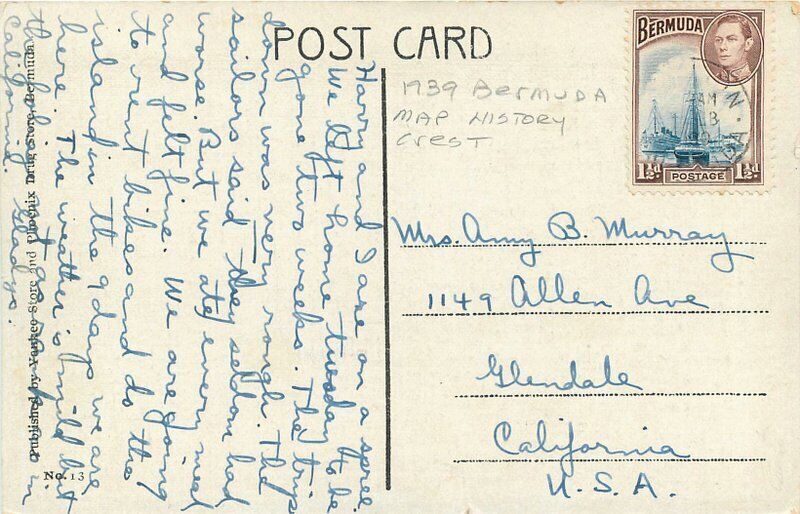 POST CARD
BERMUDA
POSTAGE
1½d 1½d
1939 BERMUDA
MAP HISTORY
CREST
Harry and I are on a spree.
We left home tuesday to be
gone two weeks. The trip
down was very rough. The
sailors said they seldom had
worse. But we ate every meal
and felt fine. We are going
to rent bikes and do the
island in the 9 days we are
here. The weather is mild but
in
California. Gladys.
Mrs. Amy B. Murray
1149 Allen Ave
Glendale
California
U.S.A.
Published by Yankee Store and Phoenix Drug Store, Bermuda.
No. 13